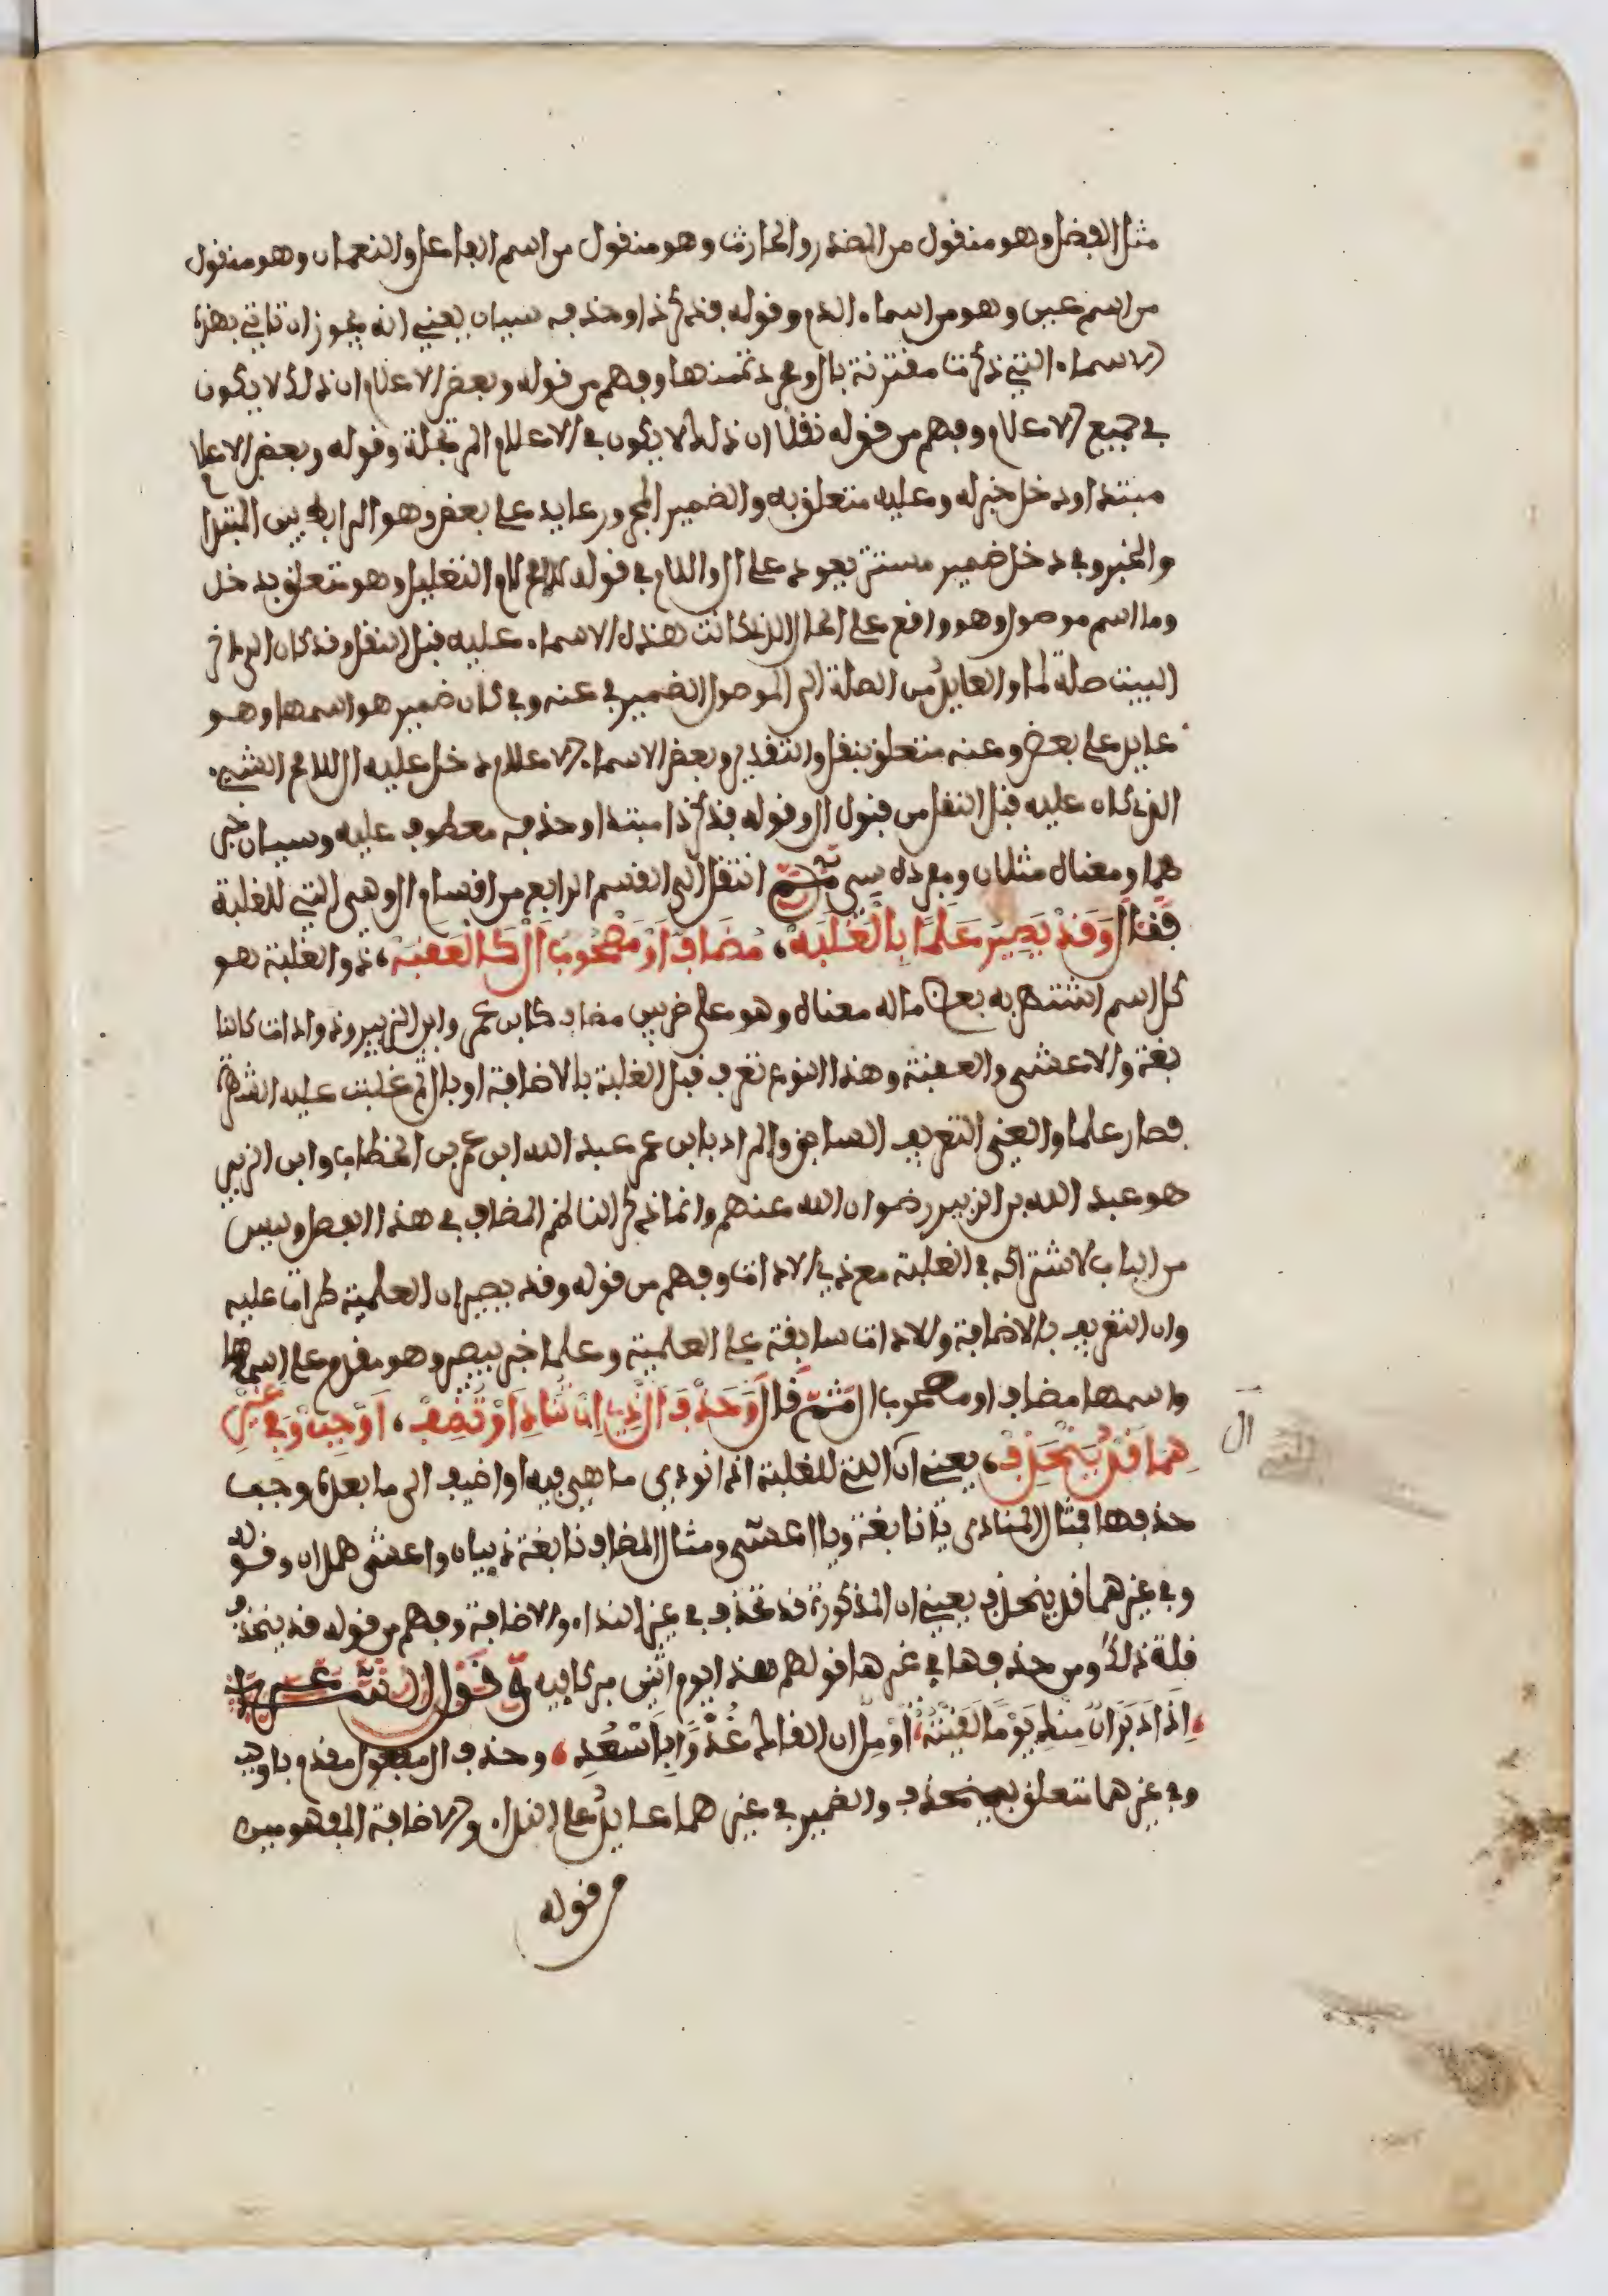 مثل الفضل وهو منقول من المصدر والحارث وهو منقول من اسم الفاعل والنعمان وهو منقول
من اسم عين وهو من اسماء الدم وقوله فذكر ذا وحذفه سيان يعني انه يجوز ان تاتي بهذه
الاسماء التي ذكرت مقترنة بال ومجردة منها وفهم من قوله وبعض الاعلام ان ذلك لا يكون
في جميع الاعلام وفهم من قوله نقلا ان ذلك لا يكون في الاعلام المرتجلة وقوله وبعض الاعلام
مبتدا ودخل خبر له وعليه متعلق به والضمير المجرور عايد على بعض وهو الرابط بين المبتدا
والخبر وفي دخل ضمير مستتر يعود على ال واللام في قوله للمح لام التعليل وهو متعلق بدخل
وما اسم موصول وهو واقع على الحال الذي كانت هذه الاسماء عليه قبل النقل وقد كان الى اخر
البيت صلة لما والعايد من الصلة الى الموصول الضمير في عنه وفي كان ضمير هو اسمها وهو
عايد على بعض وعنه متعلق بنقل والتقدير وبعض الاسماء الاعلام دخل عليه ال للامح الشيء
الذي كان عليه قبل النقل من قبول ال وقوله فذكر ذا مبتدا وحذفه معطوف عليه وسيان خبر
هما ومعناه مثلان ومفرده سي ثم انتقل الى القسم الرابع من اقسام ال وهي التي للغلبة
فقال وَقَدْ يَصِيرُ عَلَمًا بِالْغَلَبَهْ، مُضَافٌ اَوْ مَصْحُوبُ اَلْ كَالْعَقَبَهْ، ذو الغلبة هو
كل اسم اشتهر به بعض ما له معناه وهو على ضربين مضاف كابن عمر وابن الزبير وذو اداة كالنا
بغة والاعشى والعقبة وهذا النوع تعرف قبل الغلبة بالاضافة او بال ثم غلبت عليه الشهرة
فصار علما والغي التعريف السابق والمراد بابن عمر عبد الله ابن عمر بن الخطاب وابن الزبير
هو عبد الله بن الزبير رضوان الله عنهم وانما ذكر الناظم المضاف في هذا الفصل وليس
من الباب لاشتراكه في الغلبة مع ذي الاداة وفهم من قوله وقد يصير ان العلمية طرات عليه
وان التعريف بالاضافة والاداة سابقة على العلمية وعلما خبر يصير وهو مقدم على اسمها
واسمها مضاف او مصحوب ال ثم قال وَحَذْفَ اَلْ ذِي اِنْ تُنَادِ اَوْ تُضِفْ، اَوْجِبْ وَفِي غَيْرِ
هِمَا قَدْ يَنْحَذِفْ، يعني ان ال التي للغلبة اذا نودي ما هي فيه او اضيف الى ما بعده وجب
حذفها فمثال المنادى يا نابغة ويا اعشى ومثال المضاف نابغة ذبيان واعشى همدان وقوله
وفي غيرهما قد ينحذف يعني ان المذكورة قد تحذف في غير النداء والاضافة وفهم من قوله قد ينحذف
قلة ذلك ومن حذفها في غيرها قولهم هذا يوم اثنين مباركا فيه وقول الشاعر
اِذَا دَبَرَانٌ مِنْكِ يَوْمًا لَقِيتُهُ، اُؤَمِّلُ ان القاك غُدْوًا بِاَسْعُدِ، وحذف ال مفعول مقدم باوجب
وفي غيرهما متعلق بينحذف والضمير في غيرهما عايد على النداء والاضافة المفهومين
من قوله
ال